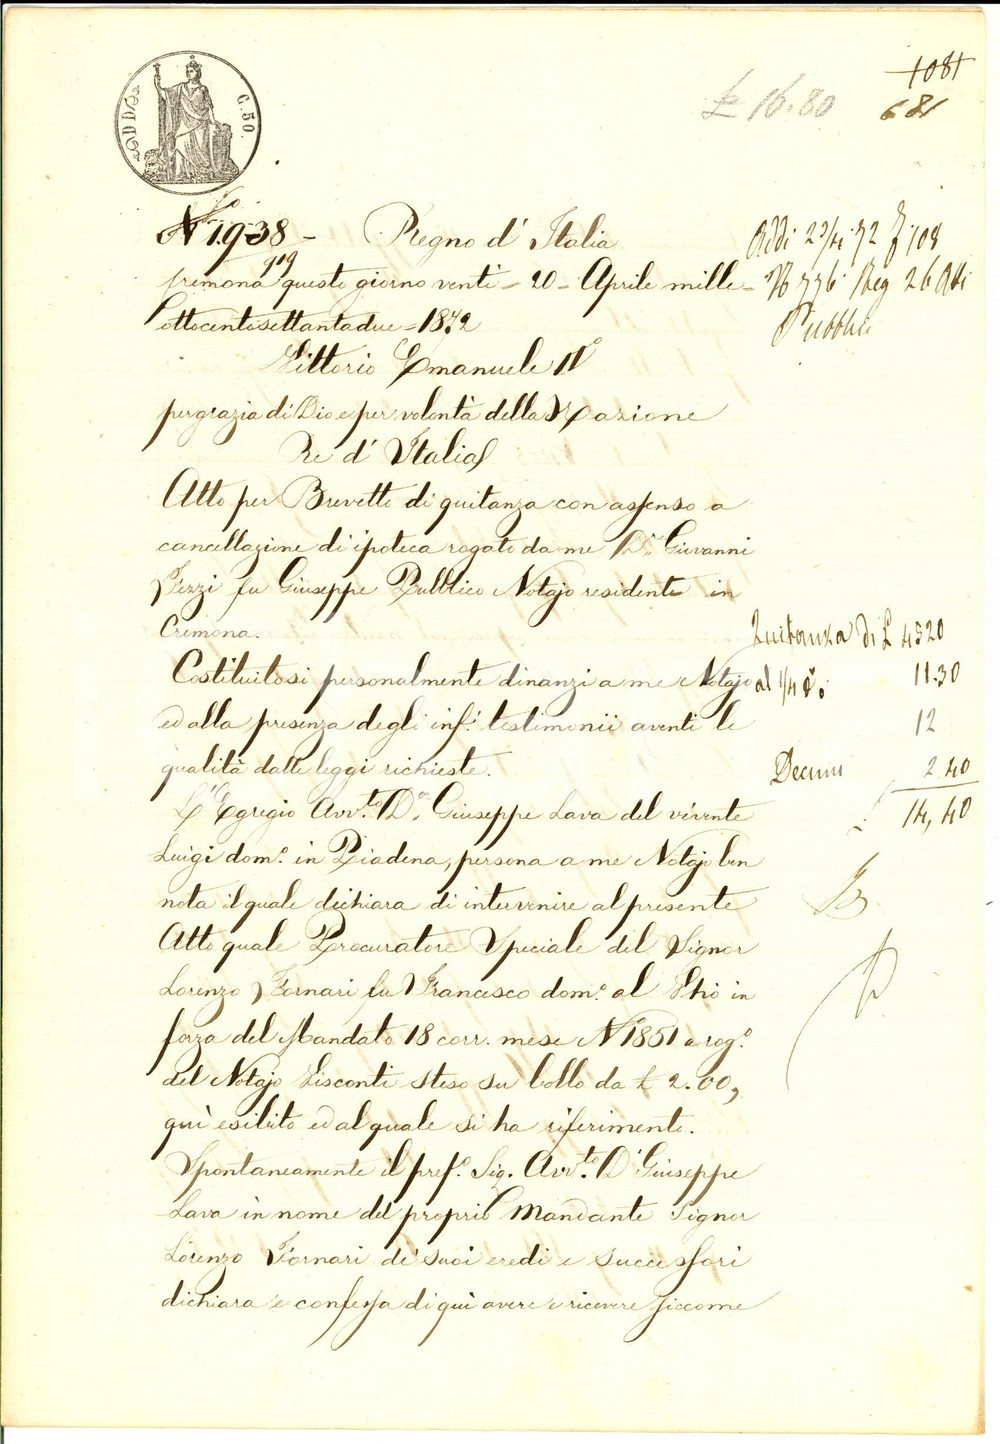 C. 50.
£ 16.80
1081
681
N° 1938 - Regno d'Italia
919
Cremona questo giorno venti = 20 = Aprile mille=
ottocentosettantadue = 1872
Vittorio Emanuele II°
per grazia di Dio e per volontà della Nazione
Re d'Italia
Addi 23/4 72 f 108
N 776 Reg 26 Atti
Pubblici
Atto per Brevetto di quitanza con assenso a
cancellazione di ipoteca rogato da me Dr. Giovanni
Fezzi fu Giuseppe Pubblico Notajo residente in
Cremona.
Costituitosi personalmente dinanzi a me Notajo
ed alla presenza degli inf.i testimonii aventi le
qualità dalle leggi richieste.
Quitanza di £ 4520
al 1/4 % 11.30
12
Decimi 2 40
£ 14,40
L'Egregio Avv.to Dr. Giuseppe Lava del vivente
Luigi dom.o in Piadena, persona a me Notajo ben
nota il quale dichiara di intervenire al presente
Atto quale Procuratore Speciale del Signor
Lorenzo Fornari fu Francesco dom.o al Vhò in
forza del Mandato 18 corr. mese N° 1851 a rog.o
del Notajo Visconti steso su bollo da £ 2.00,
quì esibito ed al quale si ha riferimento.
Spontaneamente il pref.o Sig. Avv.to Dr Giuseppe
Lava in nome del proprio Mandante Signor
Lorenzo Fornari de' suoi eredi e successori
dichiara e confessa di quì avere e ricevere siccome